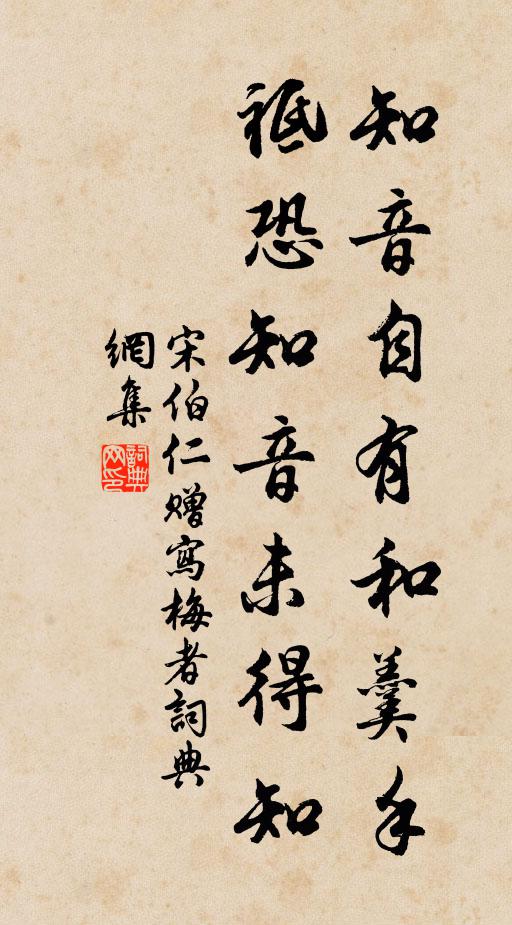 知音自有和羹手
祗恐知音未得知
宋伯仁赠寫梅者詞典
網集
詞典网印